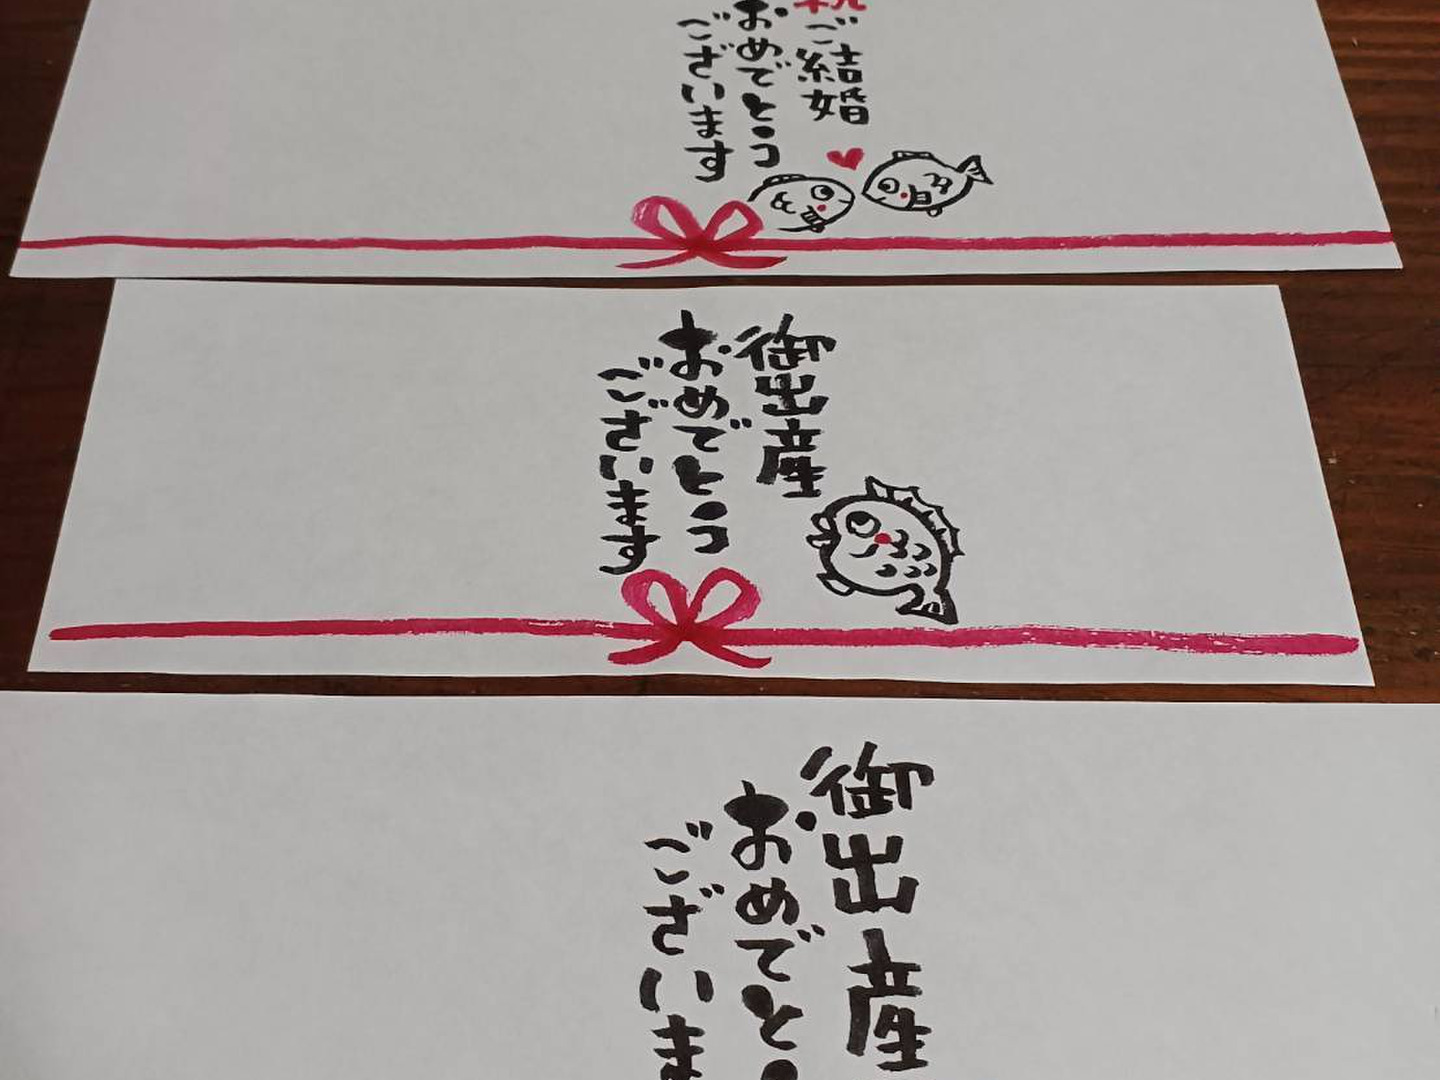 祝ご結婚
おめでとう
ございます
御出産
おめでとう
ございます
御出産
おめでと
ございま